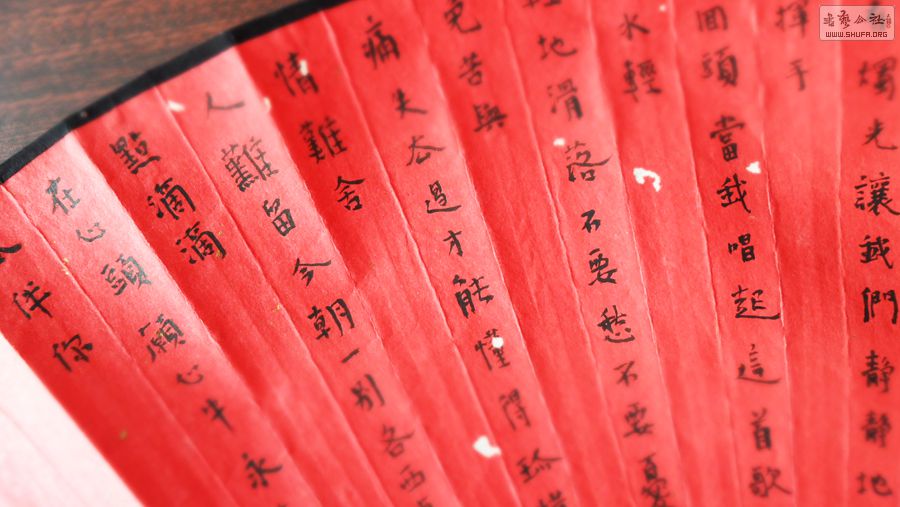 燭光讓我們靜靜地
揮手
回頭當我唱起這首歌
水輕
地滑落不要愁不要憂
免苦與
痛失去過才能懂得珍惜
情難舍
人難留今朝一別各西
點滴滴
在心頭願心中永
伴你
書藝公社
WWW.SHUFA.ORG